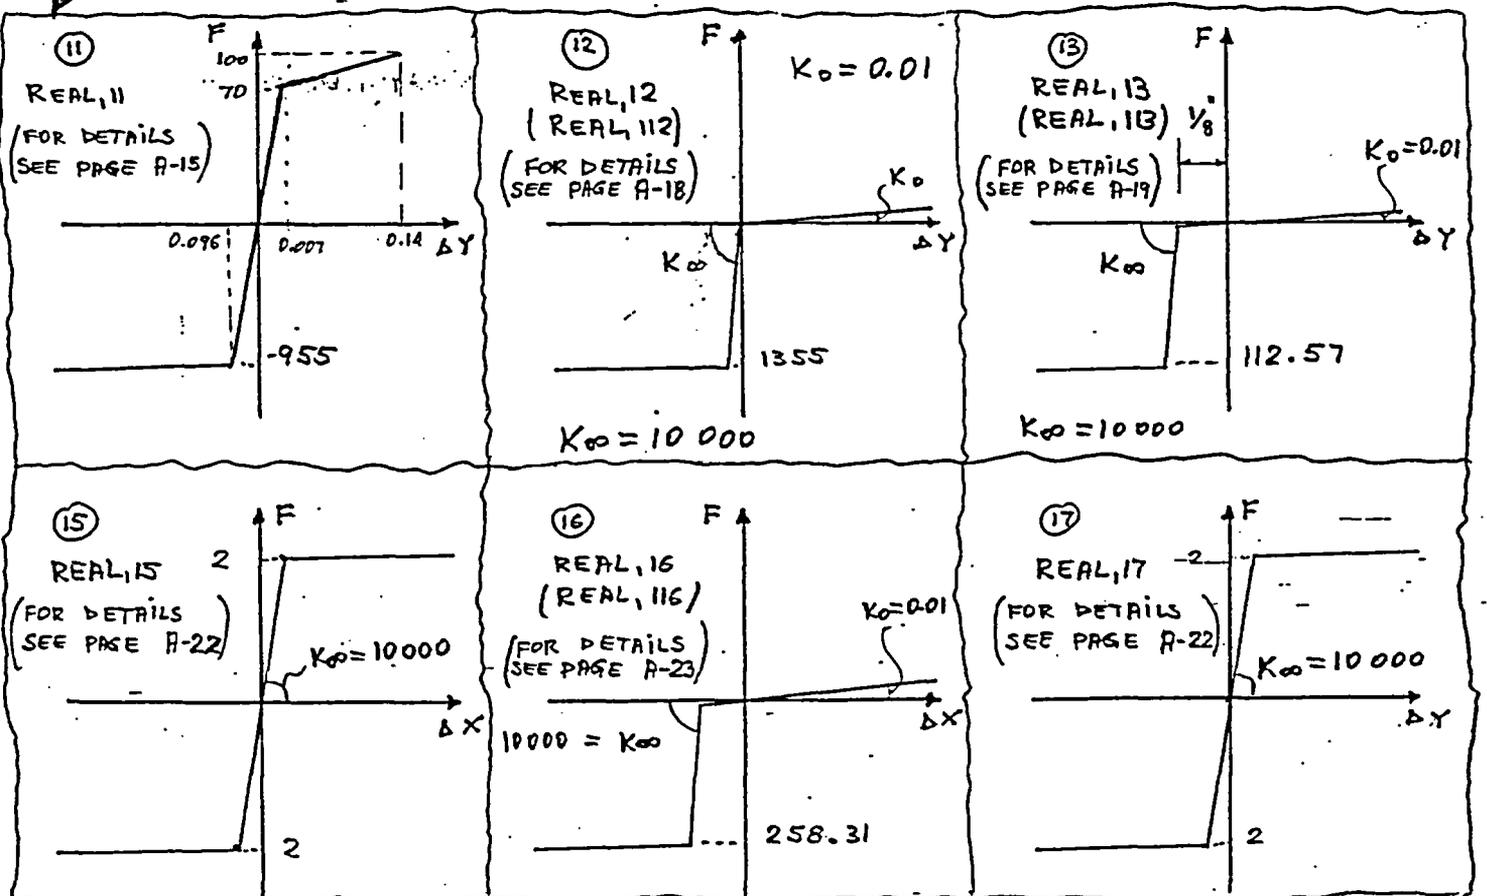 11
F
100
70
REAL, 11
(FOR DETAILS
SEE PAGE A-15)
0.096
0.007
0.14
ΔY
-955
12
F
K₀ = 0.01
REAL, 12
(REAL, 112)
(FOR DETAILS
SEE PAGE A-18)
K₀
ΔY
K∞
1355
K∞ = 10 000
13
F
REAL, 13
(REAL, 113)
1/8"
(FOR DETAILS
SEE PAGE A-19)
K₀=0.01
ΔY
K∞
112.57
K∞ = 10 000
15
F
2
REAL, 15
(FOR DETAILS
SEE PAGE A-22)
K∞ = 10 000
ΔX
2
16
F
REAL, 16
(REAL, 116)
K₀=0.01
(FOR DETAILS
SEE PAGE A-23)
ΔX
10000 = K∞
258.31
17
F
2
REAL, 17
(FOR DETAILS
SEE PAGE A-22)
K∞ = 10 000
ΔY
2